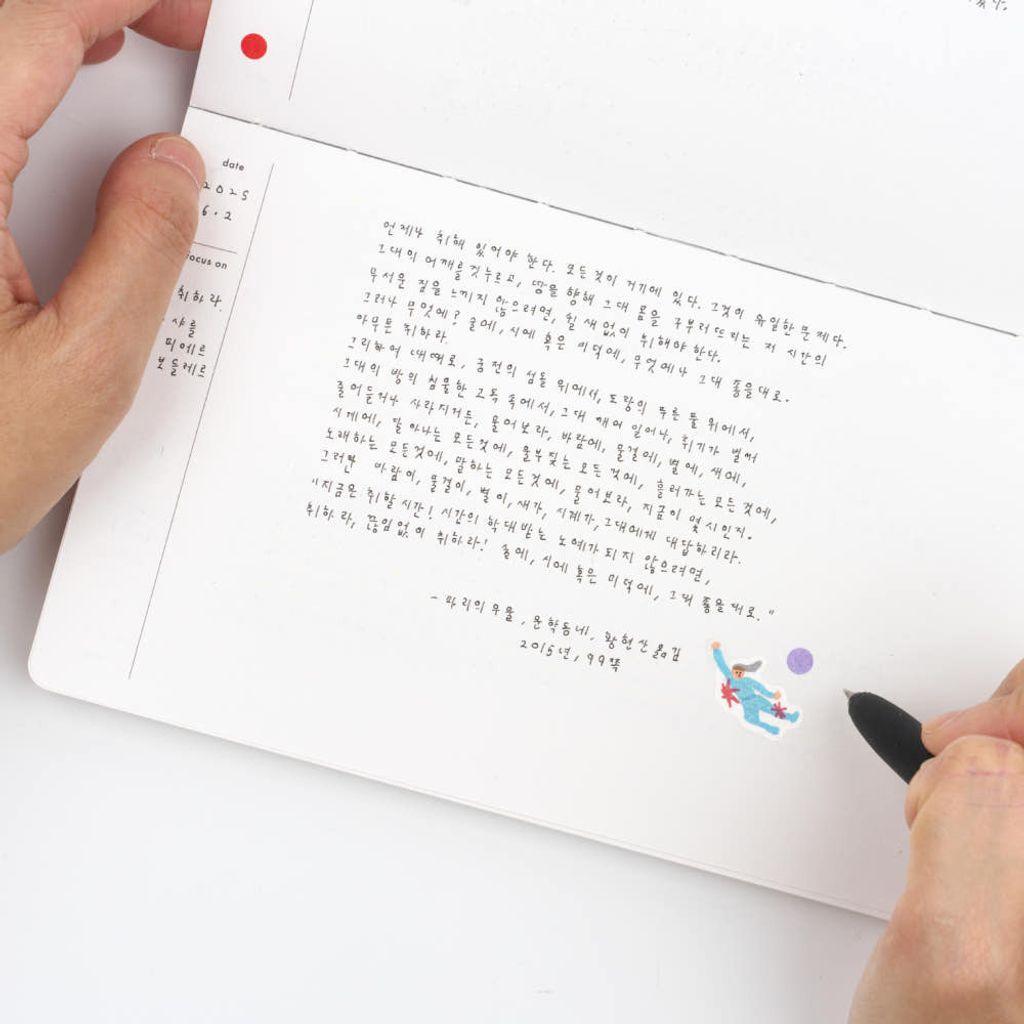 date
2025
6.2
focus on
취하라.
샤를
피에르
보들레르
언제나 취해 있어야 한다. 모든것이 거기에 있다. 그것이 유일한 문제다.
그대의 어깨를 짓누르고, 땅을 향해 그대 몸을 구부러뜨리는 저 시간의
무서운 짐을 느끼지 않으려면, 쉴 새 없이 취해야 한다.
그러나 무엇에? 술에, 시에 혹은 미덕에, 무엇에나 그대 좋을대로.
아무튼 취하라.
그리하여 때때로, 궁전의 섬돌 위에서, 도랑의 푸른 풀 위에서,
그대의 방의 침울한 고독 속에서, 그대 깨어 일어나, 취기가 벌써
줄어들거나 사라지거든, 물어보라, 바람에, 물결에, 별에, 새에,
시계에, 달아나는 모든것에, 울부짖는 모든 것에, 흘러가는 모든것에,
노래하는 모든것에, 말하는 모든것에, 물어보라, 지금이 몇시인지.
그러면 바람이, 물결이, 별이, 새가, 시계가, 그대에게 대답하리라.
"지금은 취할시간! 시간의 학대받는 노예가 되지 않으려면,
취하라, 끊임없이 취하라! 술에, 시에 혹은 미덕에, 그대 좋을대로."
- 파리의 우울, 문학동네, 황현산 옮김
2015년, 99쪽